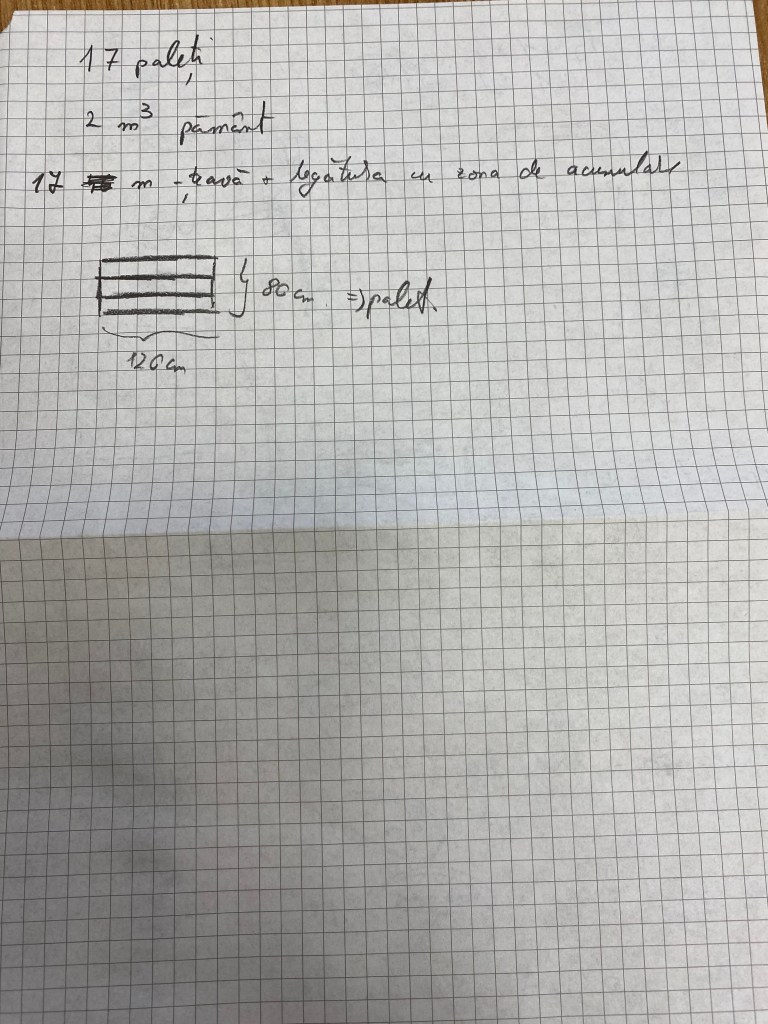 17 paleți
2 m³ pământ
17 m - țeavă + legătura cu zona de acumulare
80 cm => palet
120 cm